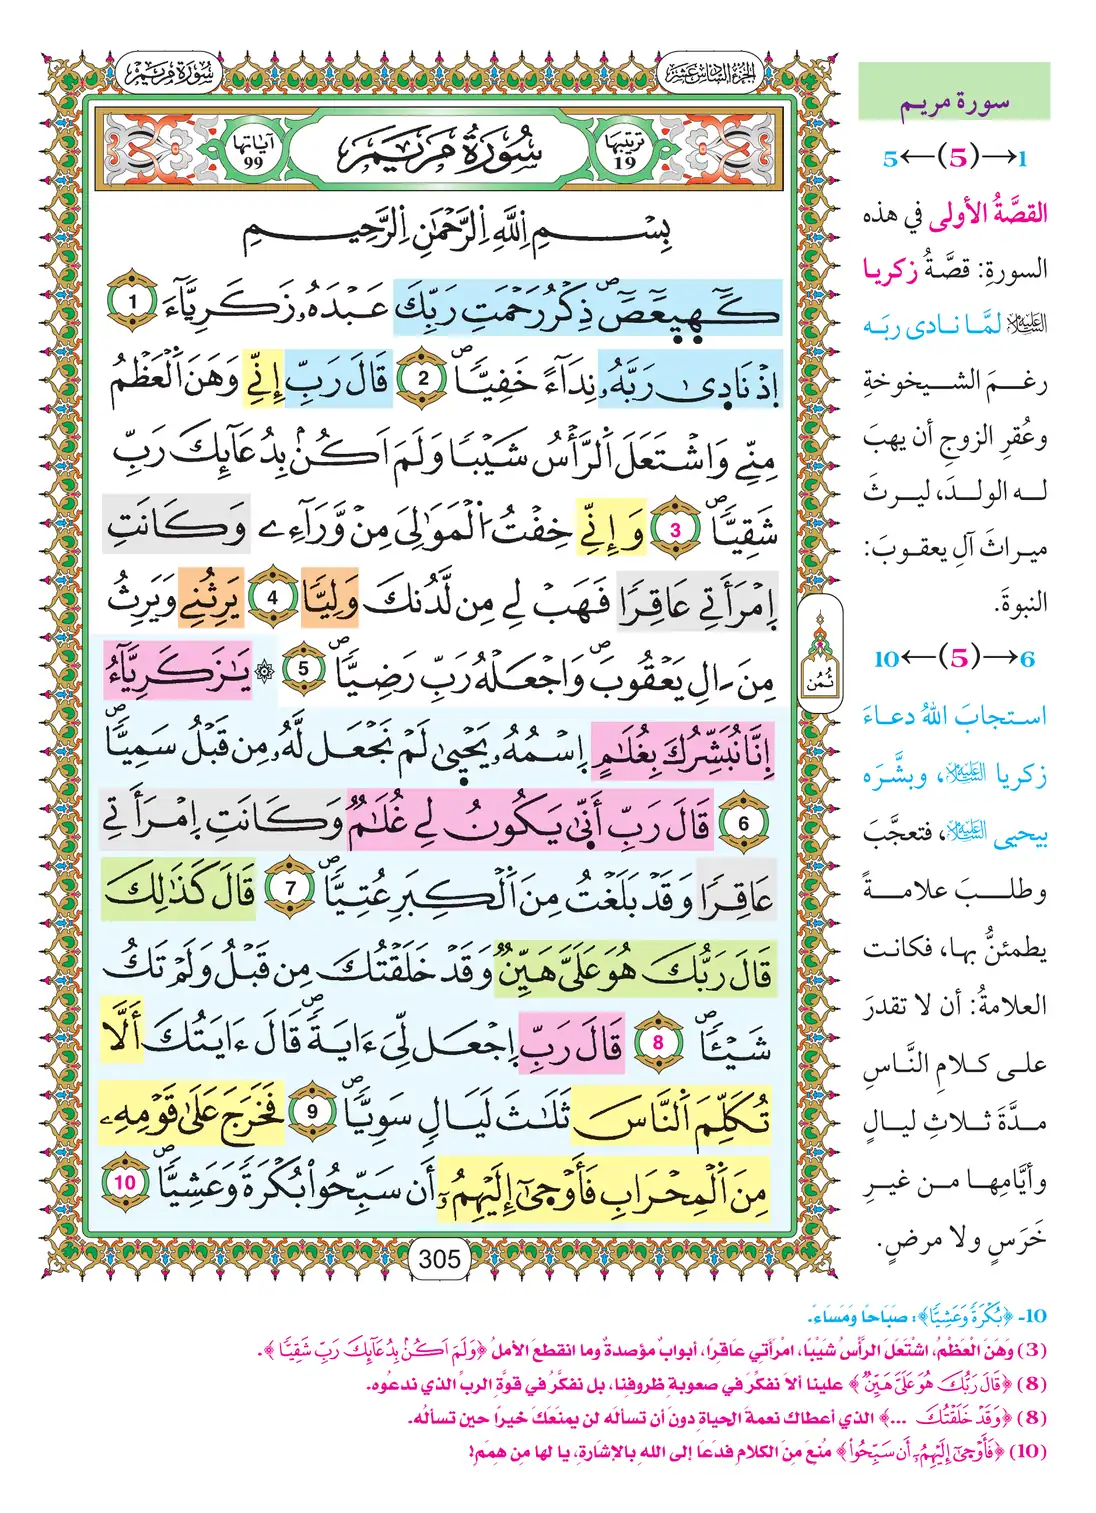 الجزء السادس عشر
سورة مريم
ترتيبها 19
سُورَةُ مَرْيَمَ
آياتها 99
بِسْمِ اِللَّهِ اِلرَّحْمَٰنِ اِلرَّحِيمِ
كَٓهيعَٓصَٓ ذِكْرُ رَحْمَتِ رَبِّكَ عَبْدَهُۥ زَكَرِيَّآءَ 1
إِذْ نَادِىٰ رَبَّهُۥ نِدَآءً خَفِيّٗا 2 قَالَ رَبِّ إِنِّي وَهَنَ اَلْعَظْمُ
مِنِّے وَاشْتَعَلَ اَلرَّأْسُ شَيْبٗا وَلَمَ اَكُنۢ بِدُعَآئِكَ رَبِّ
شَقِيّٗا 3 وَإِنِّي خِفْتُ اُلْمَوَٰلِيَ مِنْ وَّرَآءِے وَكَانَتِ
اِمْرَأَتِے عَاقِرٗا فَهَبْ لِے مِن لَّدُنكَ وَلِيّٗا 4 يَرِثُنِے وَيَرِثُ
مِنَ اٰلِ يَعْقُوبَ وَاجْعَلْهُ رَبِّ رَضِيّٗا 5 ۞ يَٰزَكَرِيَّآءُ
اِنَّا نُبَشِّرُكَ بِغُلَٰمٍ اِسْمُهُۥ يَحْيِىٰ لَمْ نَجْعَل لَّهُۥ مِن قَبْلُ سَمِيّٗا
6 قَالَ رَبِّ أَنِّىٰ يَكُونُ لِے غُلَٰمٞ وَكَانَتِ اِمْرَأَتِے
عَاقِرٗا وَقَدْ بَلَغْتُ مِنَ اَلْكِبَرِ عُتِيّٗا 7 قَالَ كَذَٰلِكَ
قَالَ رَبُّكَ هُوَ عَلَيَّ هَيِّنٞ وَقَدْ خَلَقْتُكَ مِن قَبْلُ وَلَمْ تَكُ
شَيْـٔٗا 8 قَالَ رَبِّ اِجْعَل لِّيَ ءَايَةٗ قَالَ ءَايَتُكَ أَلَّا
تُكَلِّمَ اَلنَّاسَ ثَلَٰثَ لَيَالٖ سَوِيّٗا 9 فَخَرَجَ عَلَىٰ قَوْمِهِۦ
مِنَ اَلْمِحْرَابِ فَأَوْحِىٰٓ إِلَيْهِمُۥٓ أَن سَبِّحُواْ بُكْرَةٗ وَعَشِيّٗا 10
ثُمُن
305
سورة مريم
1→(5)←5
القصَّةُ الأولى في هذه
السورةِ: قصَّةُ زكريا
عليه السلام لمَّا نادى ربَه
رغمَ الشيخوخةِ
وعُقرِ الزوجِ أن يهبَ
له الولدَ، ليرثَ
ميراثَ آلِ يعقوبَ:
النبوةَ.
6→(5)←10
استجابَ اللهُ دعاءَ
زكريا عليه السلام، وبشَّرَه
بيحيى عليه السلام، فتعجَّبَ
وطلبَ علامةً
يطمئنُّ بها، فكانت
العلامةُ: أن لا تقدرَ
على كلامِ النَّاسِ
مدَّةَ ثلاثِ ليالٍ
وأيَّامِها من غيرِ
خَرَسٍ ولا مرضٍ.
10- ﴿بُكْرَةٗ وَعَشِيّٗا﴾: صَبَاحًا وَمَسَاءً.
(3) وَهَنَ الْعَظْمُ، اشْتَعَلَ الرَّأْسُ شَيْبًا، امْرَأَتي عَاقِرًا، أبوابٌ مؤصدةٌ وما انقطعَ الأملُ ﴿وَلَمَ اَكُنۢ بِدُعَآئِكَ رَبِّ شَقِيّٗا﴾.
(8) ﴿قَالَ رَبُّكَ هُوَ عَلَيَّ هَيِّنٞ﴾ علينا ألا نفكِّرَ في صعوبةِ ظروفِنا، بل نفكِّرُ في قوَّةِ الربِّ الذي ندعُوه.
(8) ﴿وَقَدْ خَلَقْتُكَ ...﴾ الذي أعطاك نعمةَ الحياةِ دونَ أن تسألَه لن يمنَعَكَ خيرًا حين تسألُه.
(10) ﴿فَأَوْحِىٰٓ إِلَيْهِمُۥٓ أَن سَبِّحُواْ﴾ مُنعَ مِنَ الكلامِ فدَعَا إلى اللهِ بالإشارةِ، يا لها مِن هِمَم!